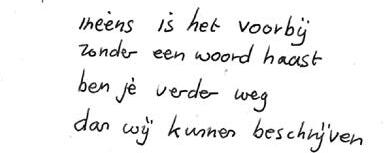 inéens is het voorbij
zonder een woord haast
ben je verder weg
dan wij kunnen beschrijven